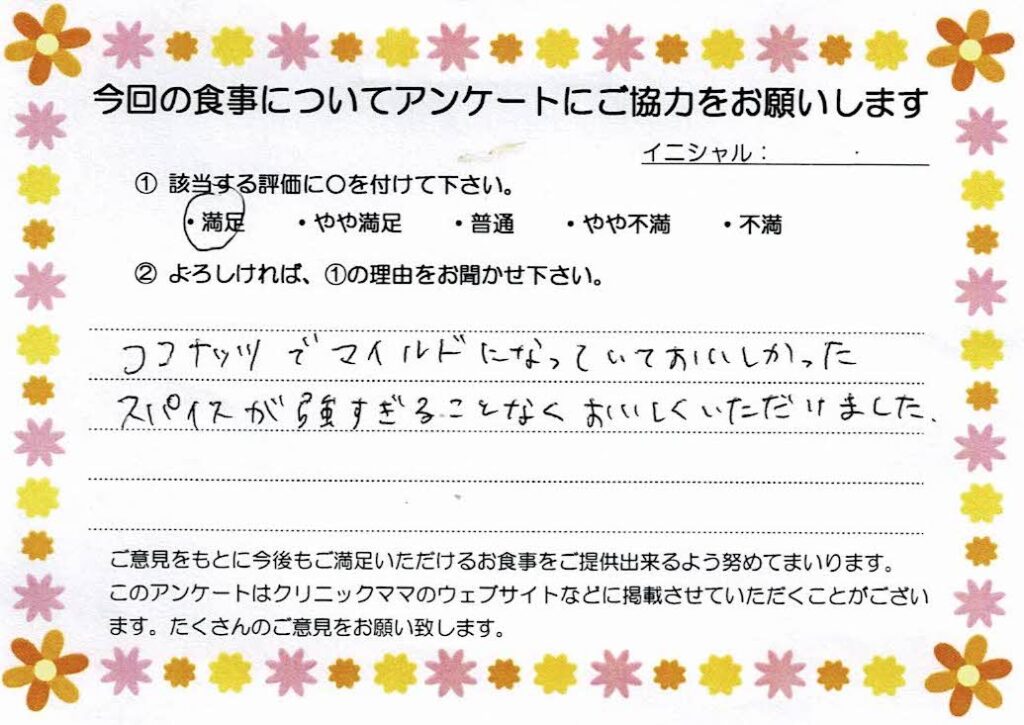 今回の食事についてアンケートにご協力をお願いします
イニシャル：
① 該当する評価に○を付けて下さい。
・満足 ・やや満足 ・普通 ・やや不満 ・不満
② よろしければ、①の理由をお聞かせ下さい。
ココナッツでマイルドになっていておいしかった
スパイスが強すぎることなくおいしくいただけました.
ご意見をもとに今後もご満足いただけるお食事をご提供出来るよう努めてまいります。
このアンケートはクリニックママのウェブサイトなどに掲載させていただくことがござい
ます。たくさんのご意見をお願い致します。